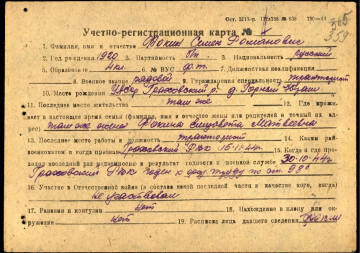 Учетно-регистрационная карта №
1. Фамилия, имя и отчество Фокин Семен Романович
2. Год рождения 1920 3. Партийность б/п 4. Национальность русский
5. Образование 4 кл. 6. № ВУС 7. Должностная квалификация
8. Военное звание рядовой 9. Гражданская специальность тракторист
10. Место рождения УАССР, Граховский р-н, д.
11. Последнее место жительства там же 12. Где проживает
в настоящее время семья (фамилия, имя и отчество жены или родителей и точный их адрес)
там же жена Фокина Матвеевна
13. Последнее место работы и должность тракторист 14. Каким райвоенкоматом
и когда призван Граховский РВК 15.11.44г. 15. Когда и где проходил
последний раз медкомиссию и результат годности к военной службе 30.10.44г.
Граховский РВК годен к физ труду по ст.
16. Участие в Отечественной войне (в составе какой последней части и качестве кого, когда)
не участвовал
17. Ранения и контузии нет 18. Нахождение в плену или окружении
нет 19. Расписка лица давшего сведения